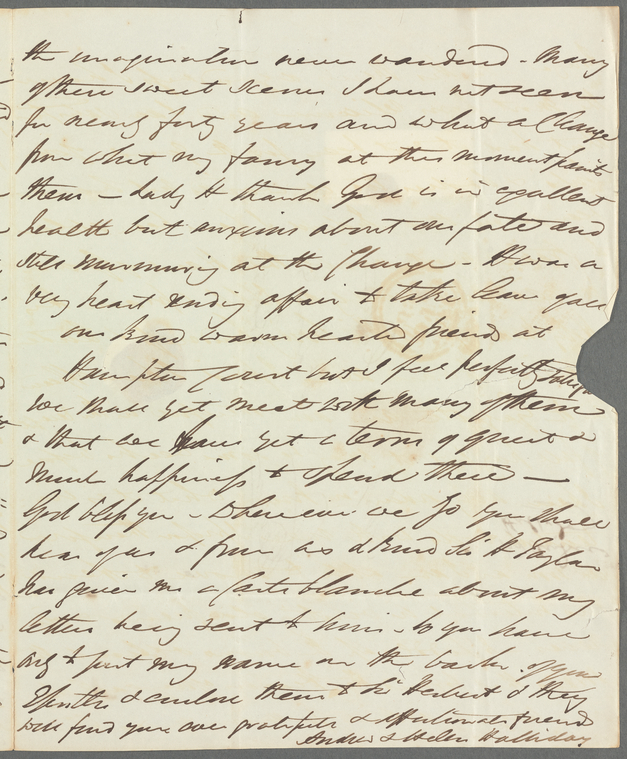 the imagination never wandered - Many
of these sweet scenes I have not seen
for nearly forty years and what a Change
from what my fancy at this moment paints
them - Lady H thank God is in excellent
health but anxious about our fate and
still murmuring at the Change - It was a
very heart rending affair to take leave of all
our kind warm hearted friends at
Hampton Court but I feel perfectly
we shall yet meet with many of them
& that we have yet a term of quiet &
much happiness to spend there -
God bless you - Wherever we go you shall
hear of us & from us & kind Sir H Taylor
has given me a Carte blanche about my
letters being sent to him - So you have
only to put my name on the back of your
Epistles & enclose them to Sir Herbert & they
will find your ever grateful & affectionate friends
Andrew & Helen Halliday